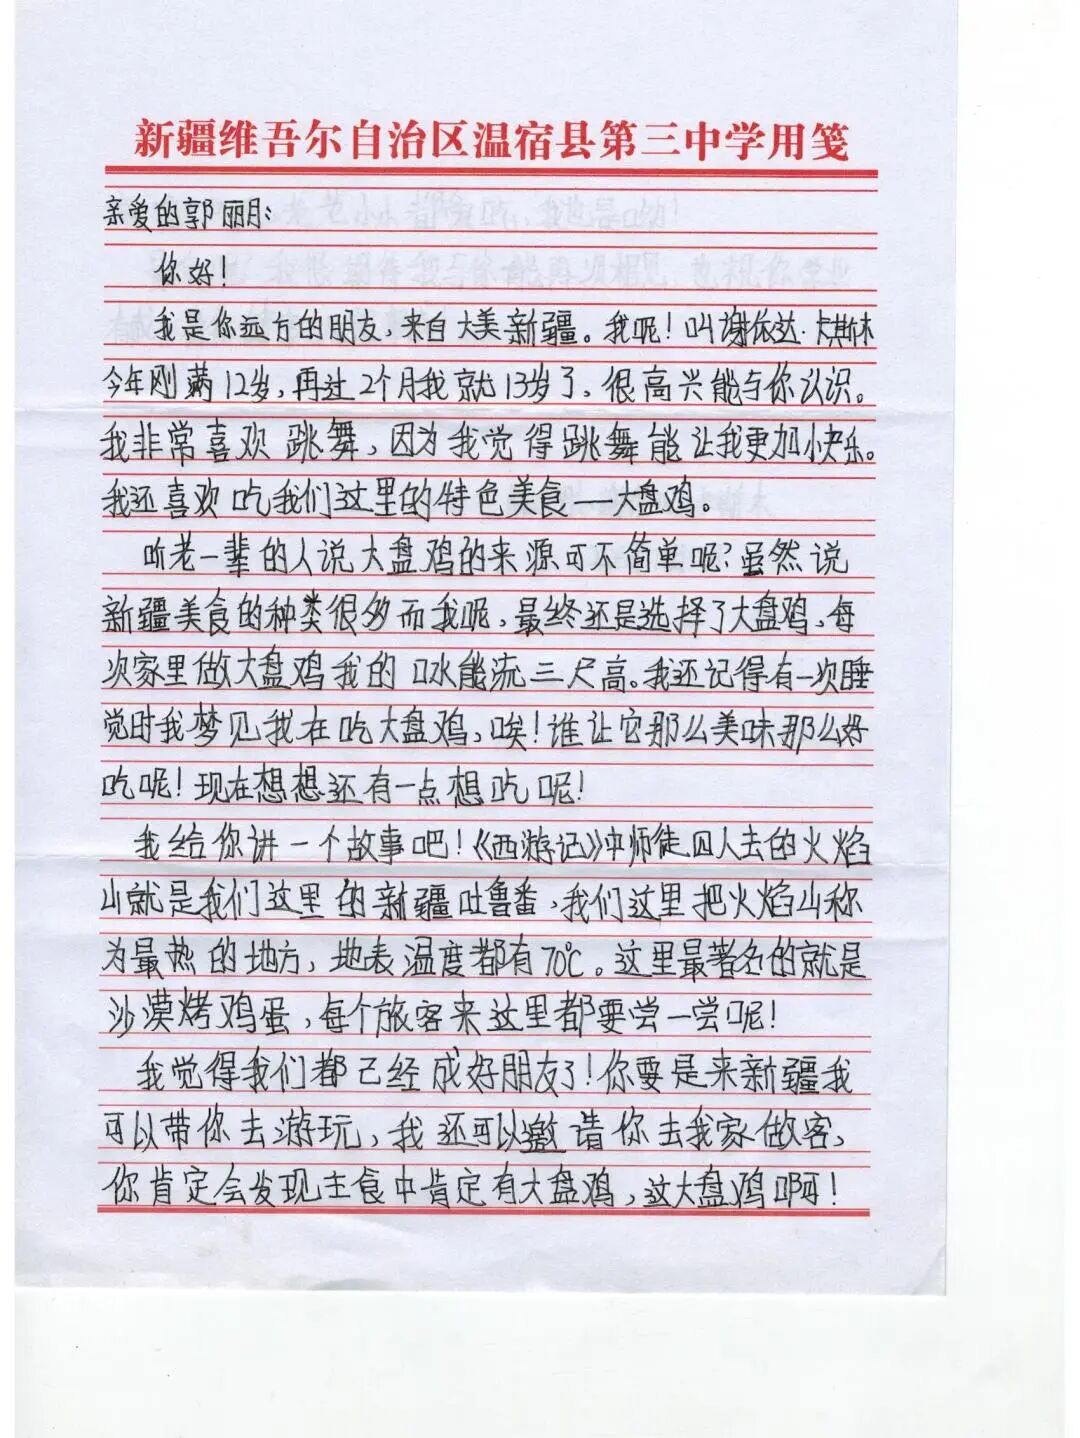 新疆维吾尔自治区温宿县第三中学用笺
亲爱的郭丽月：
你好！
我是你远方的朋友，来自大美新疆。我呢！叫谢依达·卡斯木
今年刚满12岁，再过2个月我就13岁了，很高兴能与你认识。
我非常喜欢跳舞，因为我觉得跳舞能让我更加快乐。
我还喜欢吃我们这里的特色美食—大盘鸡。
听老一辈的人说大盘鸡的来源可不简单呢？虽然说
新疆美食的种类很多而我呢，最终还是选择了大盘鸡，每
次家里做大盘鸡我的口水能流三尺高。我还记得有一次睡
觉时我梦见我在吃大盘鸡，唉！谁让它那么美味那么好
吃呢！现在想想还有一点想吃呢！
我给你讲一个故事吧！《西游记》中师徒四人去的火焰
山就是我们这里的新疆吐鲁番，我们这里把火焰山称
为最热的地方，地表温度都有70℃。这里最著名的就是
沙漠烤鸡蛋，每个旅客来这里都要尝一尝呢！
我觉得我们都已经成好朋友了！你要是来新疆我
可以带你去游玩，我还可以邀请你去我家做客，
你肯定会发现主食中肯定有大盘鸡，这大盘鸡啊！